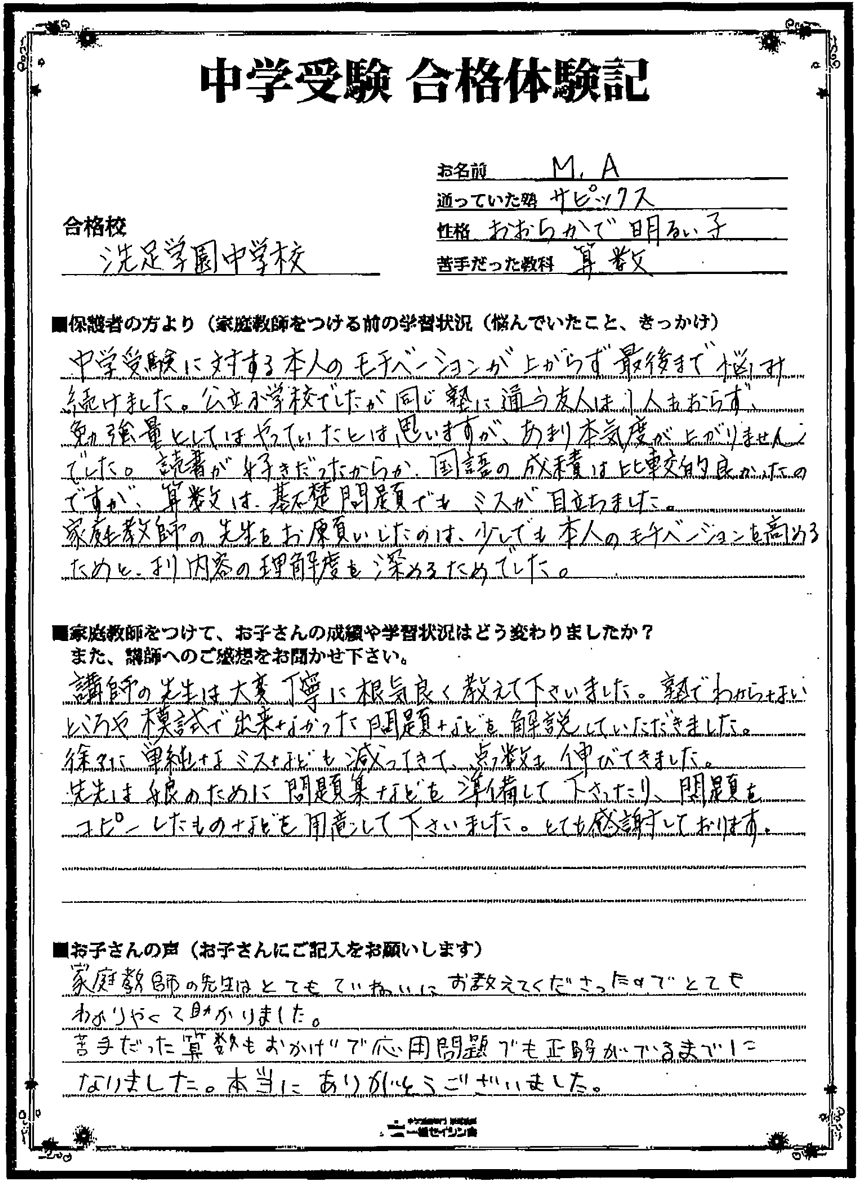 中学受験 合格体験記
お名前 M.A
通っていた塾 サピックス
性格 おおらかで明るい子
苦手だった教科 算数
合格校
洗足学園中学校
■保護者の方より（家庭教師をつける前の学習状況（悩んでいたこと、きっかけ）
中学受験に対する本人のモチベーションが上がらず最後まで悩み
続けました。公立小学校でしたが同じ塾に通う友人は1人もおらず、
勉強量としてはやっていたとは思いますが、あまり本気度が上がりません
でした。読書が好きだったからか、国語の成積は比較的良かったの
ですが、算数は、基礎問題でもミスが目立ちました。
家庭教師の先生をお願いしたのは、少しでも本人のモチベーションを高める
ためと、より内容の理解度を深めるためでした。
■家庭教師をつけて、お子さんの成績や学習状況はどう変わりましたか？
また、講師へのご感想をお聞かせ下さい。
講師の先生は大変丁寧に根気良く教えて下さいました。塾でわからない
ところや模試で出来なかった問題などを解説していただきました。
徐々に単純なミスなども減ってきて、点数も伸びてきました。
先生は娘のために問題集などを準備して下さったり、問題を
コピーしたものなどを用意して下さいました。とても感謝しております。
■お子さんの声（お子さんにご記入をお願いします）
家庭教師の先生はとてもていねいにお教えてくださったのでとても
わかりやくて助かりました。
苦手だった算数もおかげで応用問題でも正解がでるまでに
なりました。本当にありがとうございました。
一橋セイシン会